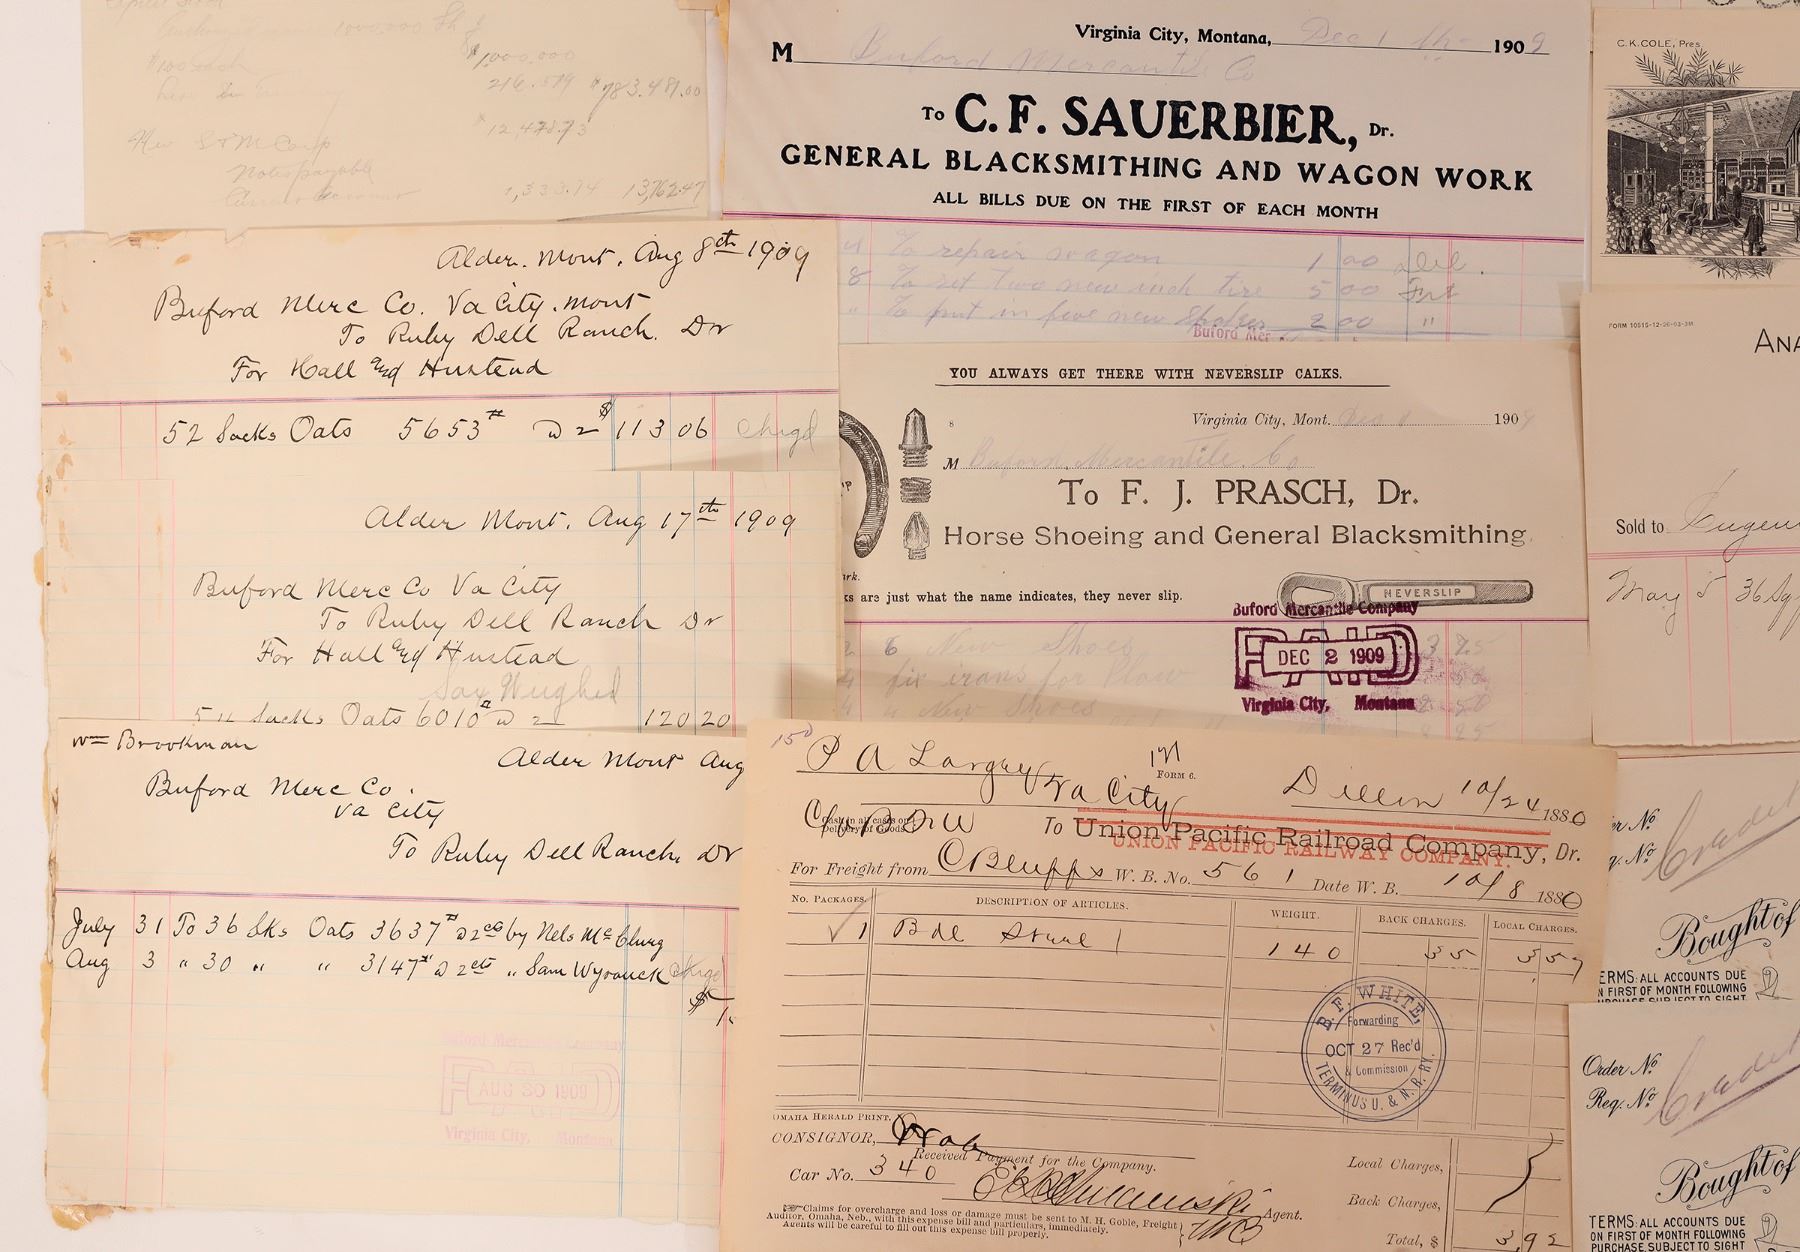 $1,000,000
216,519 $783,481.00
12,428.73
Notes payable
1,333.74 13,762.47
Virginia City, Montana, Dec 1 1909
M Buford Mercantile Co
To C. F. SAUERBIER, Dr.
GENERAL BLACKSMITHING AND WAGON WORK
ALL BILLS DUE ON THE FIRST OF EACH MONTH
To repair wagon 1 00
8 To set two new inch tire 5 00
" To put in five new Spokes 2 00 "
Buford Mer
C. K. COLE, Pres.
Alder. Mont. Aug 8th 1909
Buford Merc Co. Va City. Mont
To Ruby Dell Ranch. Dr
For Hall and Hustead
52 Sacks Oats 5653# @ 2 $113 06 Chrgd
Alder Mont. Aug 17th 1909
Buford Merc Co Va City
To Ruby Dell Ranch Dr
For Hall and Hustead
54 Sacks Oats 6010# @ 2 120 20
Wm Brookman
Alder Mont Aug
Buford Merc Co.
Va City
To Ruby Dell Ranch. Dr
July 31 To 36 Sks Oats 3637# @ 2cts by Nels McClurg
Aug 3 " 30 " " 3147# @ 2cts " Sam Wyrouck Chrgd
$1
Buford Mercantile Company
PAID
AUG 30 1909
Virginia City, Montana
YOU ALWAYS GET THERE WITH NEVERSLIP CALKS.
8
Virginia City, Mont. Dec 1 1909
M Buford Mercantile Co
To F. J. PRASCH, Dr.
Horse Shoeing and General Blacksmithing
ark.
ks are just what the name indicates, they never slip.
NEVERSLIP
Buford Mercantile Company
PAID
DEC 2 1909
Virginia City, Montana
6 New Shoes
fix irons for Plow
4 New Shoes
FORM 10515-12-26-03-3M
ANA
Sold to Eugen
May 5 36
150
P A Largey Va City
FORM 6.
Dillon 10/24 1880
Cash in all cases on
Delivery of Goods.
To Union Pacific Railroad Company, Dr.
UNION PACIFIC RAILWAY COMPANY.
For Freight from C Bluffs W. B. No. 561 Date W. B. 10/8 1880
No. PACKAGES. DESCRIPTION OF ARTICLES. WEIGHT. BACK CHARGES. LOCAL CHARGES.
1 Bdl 140 35 357
B. F. WHITE,
Forwarding
OCT 27 Rec'd
& Commission
TERMINUS U. & N. R. RY.
OMAHA HERALD PRINT.
CONSIGNOR,
Received Payment for the Company.
Car No. 340
Agent.
Claims for overcharge and loss or damage must be sent to M. H. Goble, Freight
Auditor, Omaha, Neb., with this expense bill and particulars, immediately.
Agents will be careful to fill out this expense bill properly.
Local Charges,
Back Charges,
Total, $ 3,92
er No
q. No
Bought of
ERMS: ALL ACCOUNTS DUE
N FIRST OF MONTH FOLLOWING
PURCHASE SUBJECT TO SIGHT
Order No
Req. No
Bought of
TERMS: ALL ACCOUNTS DUE
ON FIRST OF MONTH FOLLOWING
PURCHASE SUBJECT TO SIGHT